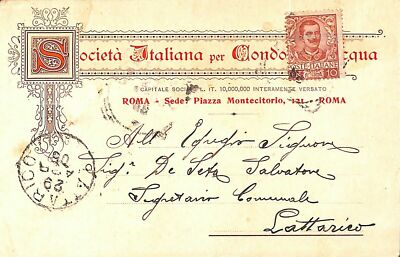 Società Italiana per Condotte d'Acqua
POSTE ITALIANE
10
CAPITALE SOCIALE L. IT. 10,000,000 INTERAMENTE VERSATO
ROMA - Sede: Piazza Montecitorio, 121. - ROMA
All' Egregio Signore
Sig. De Seta Salvatore
Segretario Comunale
Lattarico
LATTARICO
29